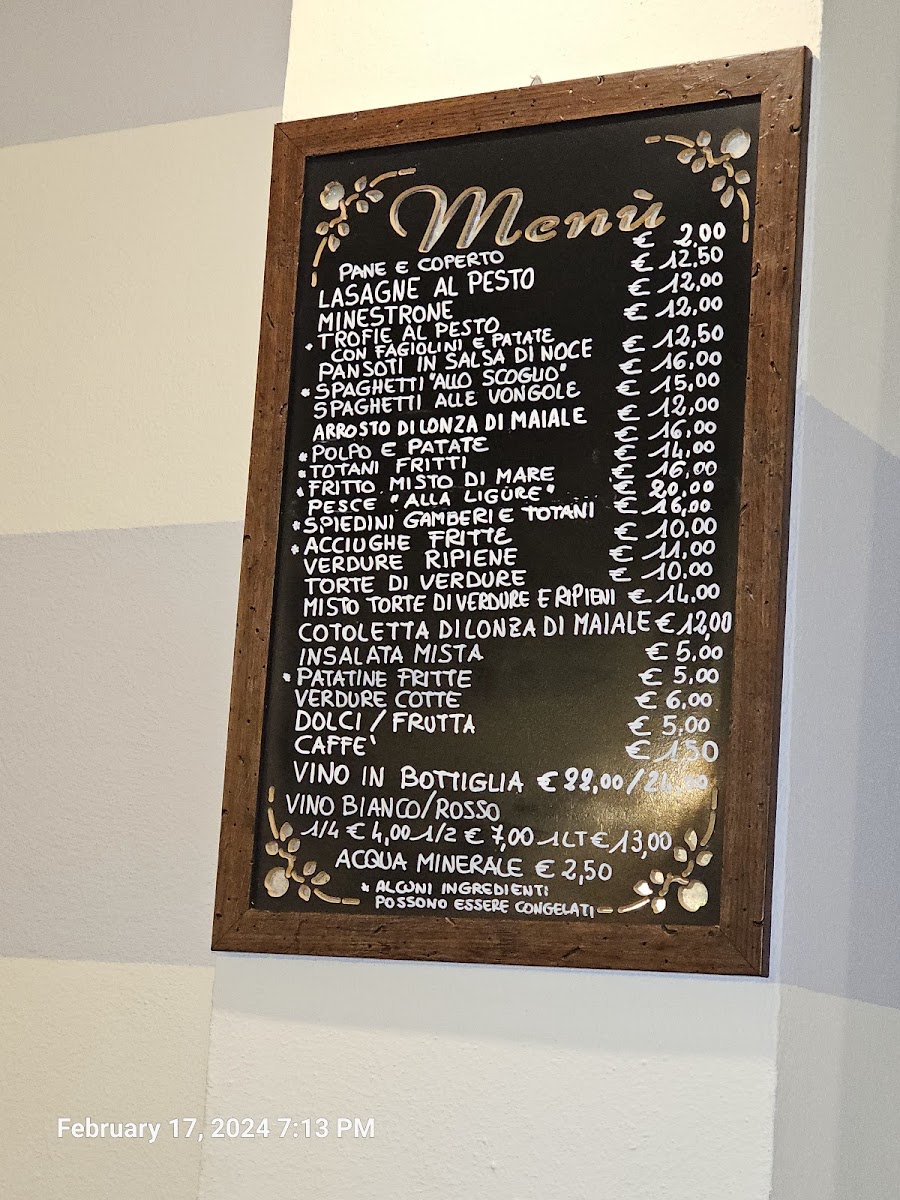 Menù
PANE E COPERTO € 2,00
LASAGNE AL PESTO € 12,50
MINESTRONE € 12,00
* TROFIE AL PESTO € 12,00
CON FAGIOLINI E PATATE
PANSOTI IN SALSA DI NOCE € 12,50
* SPAGHETTI "ALLO SCOGLIO" € 16,00
SPAGHETTI ALLE VONGOLE € 15,00
ARROSTO DI LONZA DI MAIALE € 12,00
* POLPO E PATATE € 16,00
* TOTANI FRITTI € 14,00
* FRITTO MISTO DI MARE € 16,00
PESCE "ALLA LIGURE" € 20,00
* SPIEDINI GAMBERI E TOTANI € 16,00
* ACCIUGHE FRITTE € 10,00
VERDURE RIPIENE € 11,00
TORTE DI VERDURE € 10,00
MISTO TORTE DI VERDURE E RIPIENI € 14,00
COTOLETTA DI LONZA DI MAIALE € 12,00
INSALATA MISTA € 5,00
* PATATINE FRITTE € 5,00
VERDURE COTTE € 6,00
DOLCI / FRUTTA € 5,00
CAFFE' € 1,50
VINO IN BOTTIGLIA € 22,00/
VINO BIANCO/ROSSO
1/4 € 4,00 1/2 € 7,00 1 LT € 13,00
ACQUA MINERALE € 2,50
* ALCUNI INGREDIENTI
POSSONO ESSERE CONGELATI
February 17, 2024 7:13 PM